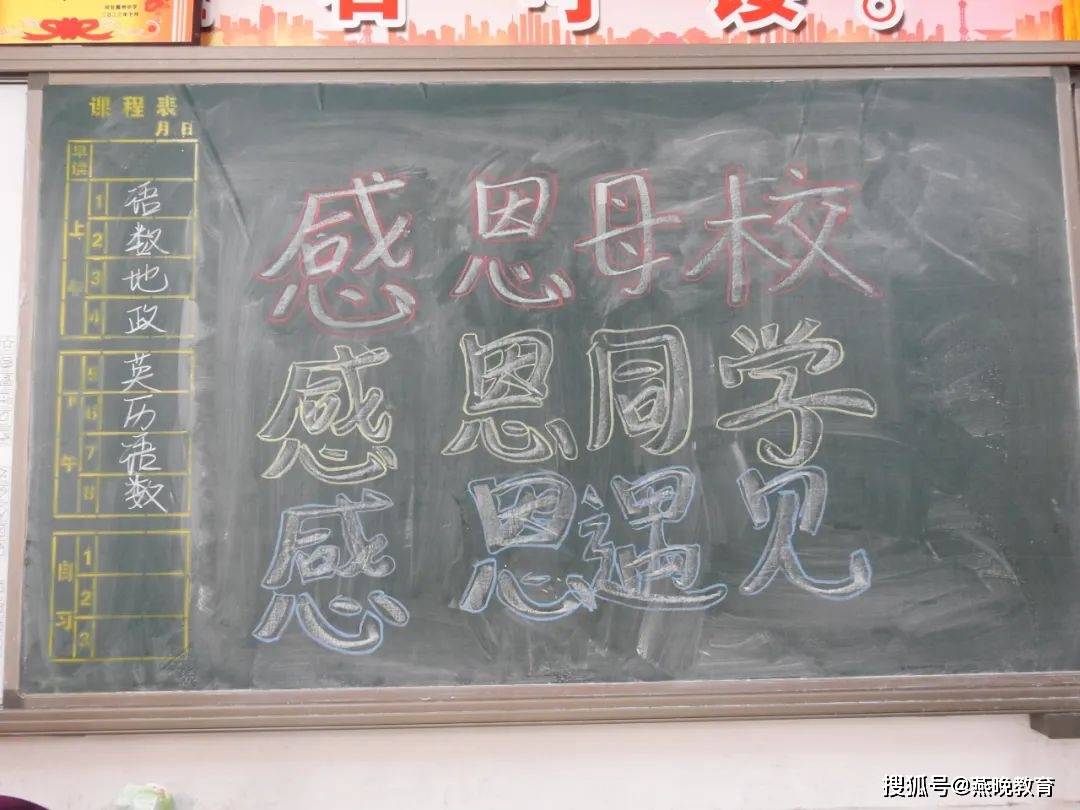 课程表
月 日
早读
上午
1 语
2 数
3 地
4 政
下午
5 英
6 历
7 语
8 数
自习
1
2
3
感恩母校
感恩同学
感恩遇见
搜狐号@燕晚教育